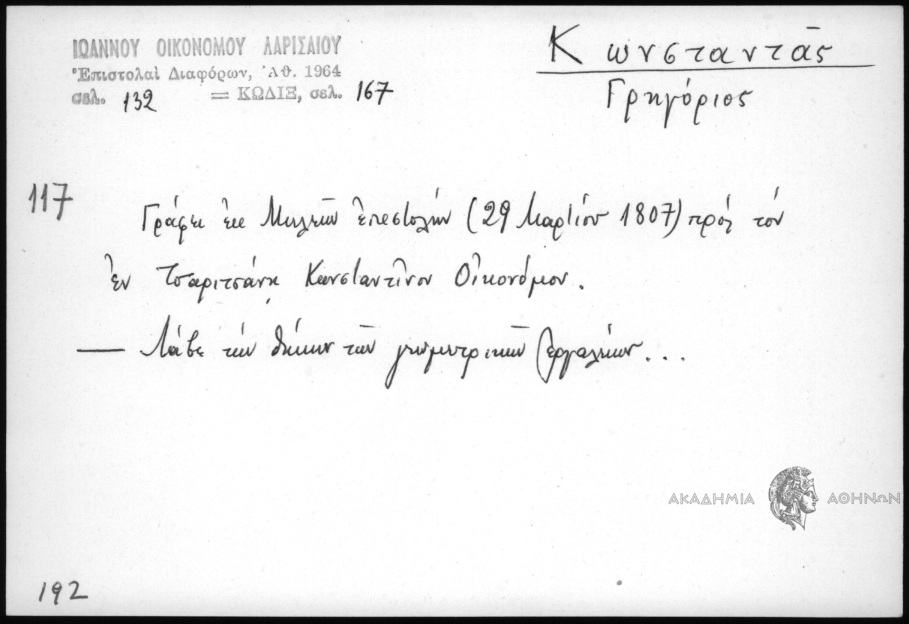 ΙΩΑΝΝΟΥ ΟΙΚΟΝΟΜΟΥ ΛΑΡΙΣΑΙΟΥ
Ἐπιστολαὶ Διαφόρων, Ἀθ. 1964
σελ. 132 = ΚΩΔΙΞ, σελ. 167
Κωνσταντᾶς
Γρηγόριος
117
Γράφει ἐκ Μηλεῶν ἐπιστολήν (29 Μαρτίου 1807) πρός τόν
ἐν Τσαριτσάνῃ Κωνσταντῖνον Οἰκονόμον.
— Λάβε τήν θήκην τῶν γεωμετρικῶν ἐργαλείων...
ΑΚΑΔΗΜΙΑ ΑΘΗΝΩΝ
192